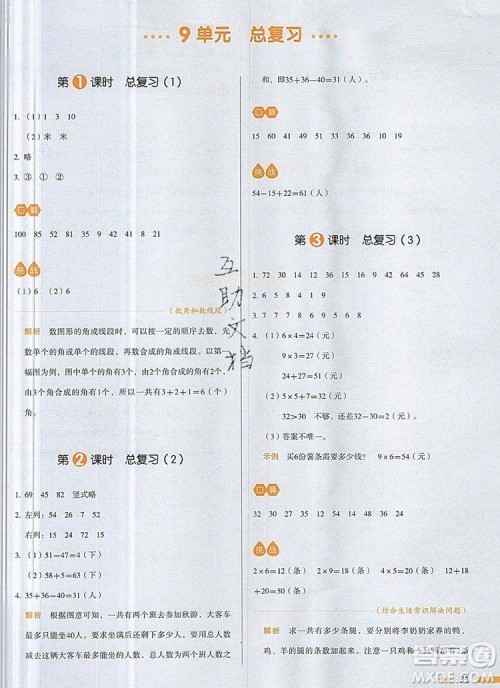 9 单元 总复习
第1课时 总复习（1）
1. （1）1 3 10
（2）米 米
2. 略
3. ③ ① ②
口算
100 85 52 81 35 9 41 42 8 21
挑战
（1）6 （2）6
（数角和数线段）
解析 数图形的角或线段时，可以按一定的顺序去数，先
数单个的角或单个的线段，再数合成的角或线段。以第一
幅图为例，图中单个的角有3个，由2个角合成的角有2个，
由3个角合成的角有1个，所以一共有3+2+1=6（个）
角。
第2课时 总复习（2）
1. 69 45 82 竖式略
2. 左列：54 24 7 52
右列：15 24 72 15
3. （1）57-6=51（下）
（2）51-4=47（下）
4. 35+36-40=31（人）
解析 根据图意可知，一共有两个班去参加秋游，大客车
最多只能坐40人。要求小客车要坐多少人，先求出两个班
一共有多少人，再用两个班的总人数减去大客车坐的人数
和，即35+36-40=31（人）
口算
15 60 41 49 51 36 33 32 24 19
挑战
54-15+22=61（人）
第3课时 总复习（3）
1. 72 30 14 32 36 42 64 45 28
2. 9 7 8 4 9 6 7 9
3. < = < > > >
4. （1）6×4=24（元）
9×3=27（元）
24<27
（2）5×5+7=32（元）
32>30 不够，还差32-30=2（元）
（3）答案不唯一。
示例 买6份薯条需要多少钱？ 9×6=54（元）
口算
32 30 27 35 16 36 24 64 7 23
挑战
2×6=12（条） 2×9=18（条） 4×5=20（条） 12+
18+20=50（条）
（结合生活常识解决问题）
解析 求一共有多少条腿，要分别求出李奶奶家养的鸭、
互助文档